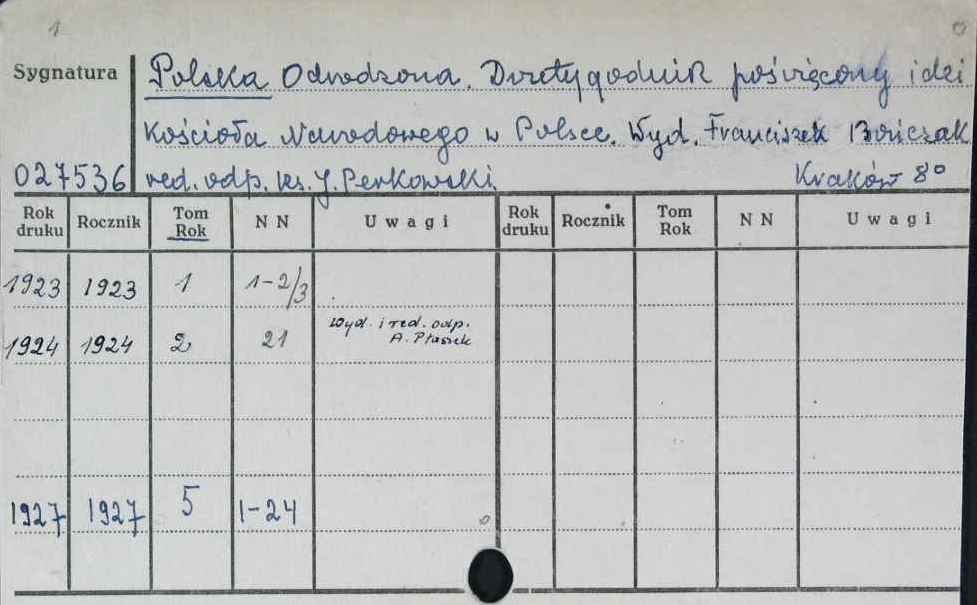 1
0
Sygnatura Polska Odrodzona. Dwutygodnik poświęcony idei
Kościoła Narodowego w Polsce. Wyd. Franciszek Bończak
027536 red. odp. ks. J. Perkowski. Kraków 8°
Rok druku Rocznik Tom Rok NN Uwagi Rok druku Rocznik Tom Rok NN Uwagi
1923 1923 1 1-2/3
1924 1924 2 21 Wyd. i red. odp.
A. Ptaszek
1927 1927 5 1-24